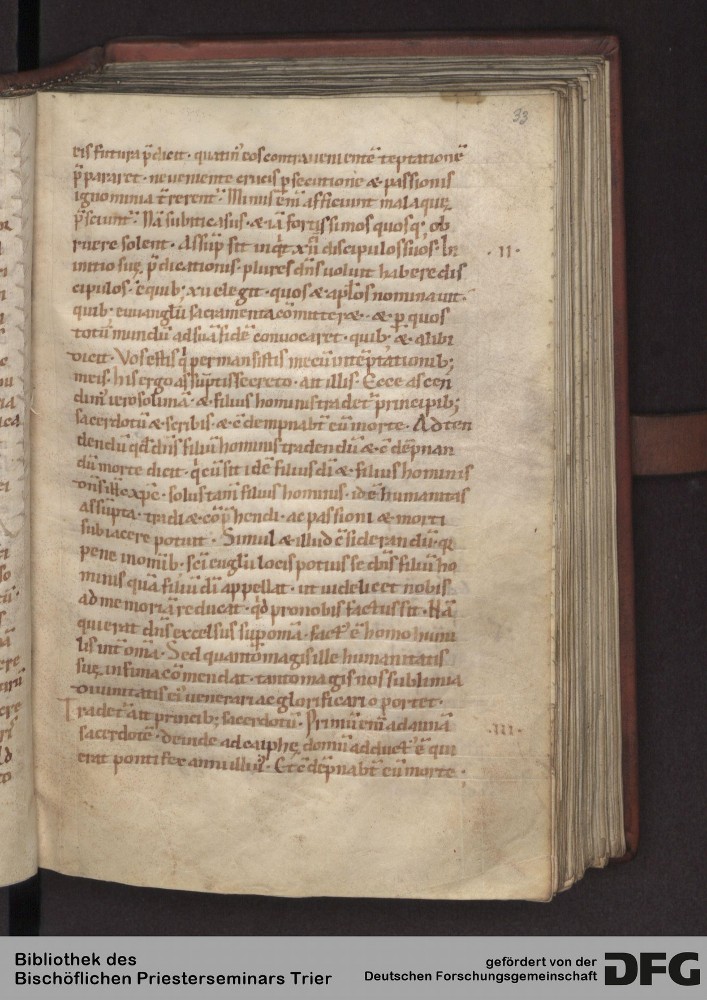 33
eis futura p̄dicit · quatin' eos contra uenientē teptationē
p̄pararet · ne ueniente crucis p̱secutione & passionis
ignominia t̄rerent'. Minus em̄ afficiunt mala quę
p̄sciunt'. Nā subiti casus · & iā fortissimos quosq; ob
ruere solent · Assūp sit inq̇t xii discipulos suos · In
· II ·
initio suę p̄dicationis · plures dn̄s uoluit habere dis
cipulos · equib; xii elegit · quos & apl̄os nominauit ·
quib; euuanglīi sacramenta cōmitter& · & p̱ quos
totū mundū ad suā fidē conuocaret · quib; & alibi
dicit · Vos estis q̇ permansistis mecū in tēptationib;
meis · his ergo assūptis secreto · ait illis · Ecce ascen
dim' ierosolimā · & filius hominis tradet' principib;
sacerdotū & scribis · & cōdempnabt̄ eū morte · Ad ten
dendū qd̄ dn̄s filiū hominis tradendū & cōdēpnan
dū morte dicit · q̇ cū sit idē filius dī & filius hominis
dn̄s ihc xp̄c · solus tam̄ filius hominis · idē humanitas
assūpta · tradi & cōp̄hendi · ac passioni & morti
subiacere potuit · Simul & illud cōsiderandū · qr
pene in omīb · sci euglīi locis potius se dn̄s filiū ho
minis quā filiū dī appellat · ut uidelicet nobis
ad memoriā reducat · qd̄ pro nobis factus sit · Nā
qui erat dn̄s excelsus sup omā · fact' ē homo humi
lis int' omā · Sed quanto magis ille humanitatis
suę infima cōmendat · tanto magis nos sublimia
diuinitatis ei' uenerari ac glorificari oportet ·
Tradet' ait princib; sacerdotū · Primū em̄ ad annā
· III ·
sacerdotē · deinde ad caiphę domū adduct' ē qui
erat pontifex anni illius · Et cōdēpnabt̄ eū morte ·
Bibliothek des
Bischöflichen Priesterseminars Trier
gefördert von der
Deutschen Forschungsgemeinschaft
DFG